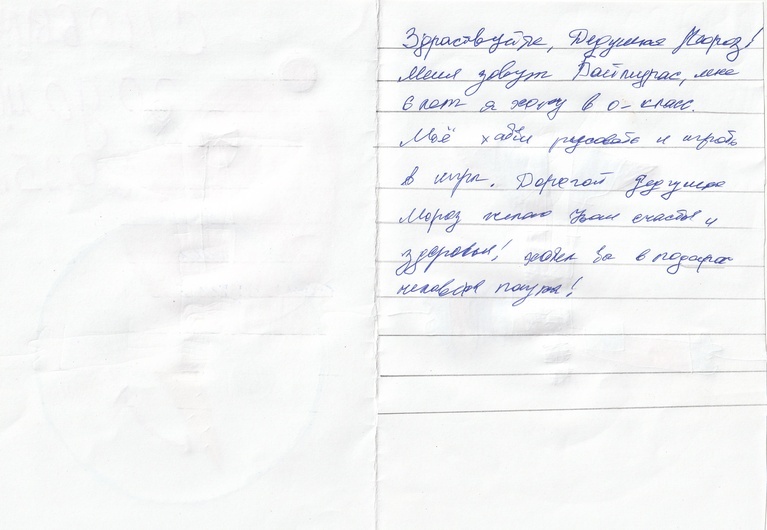 Здраствуйте, Дедушка Мороз!
Меня зовут Байтмурас, мне
6 лет я хожу в 0-класс.
Моё хобби рисовать и играть
в игры. Дорогой Дедушка
Мороз желаю Вам счастья и
здоровья! хотел бы в подарок
человека паука!